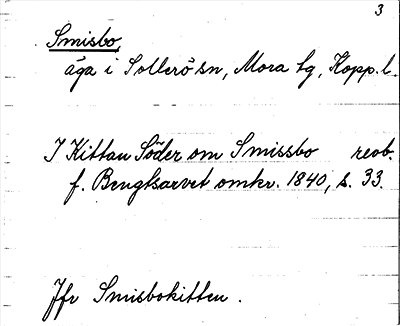 3
Smisbo,
äga i Sollerö sn, Mora tg, Kopp. l.
I Kittan Söder om Smissbo reob.
f. Bengtsarvet omkr. 1840, s. 33.
Jfr Smisbokitten.